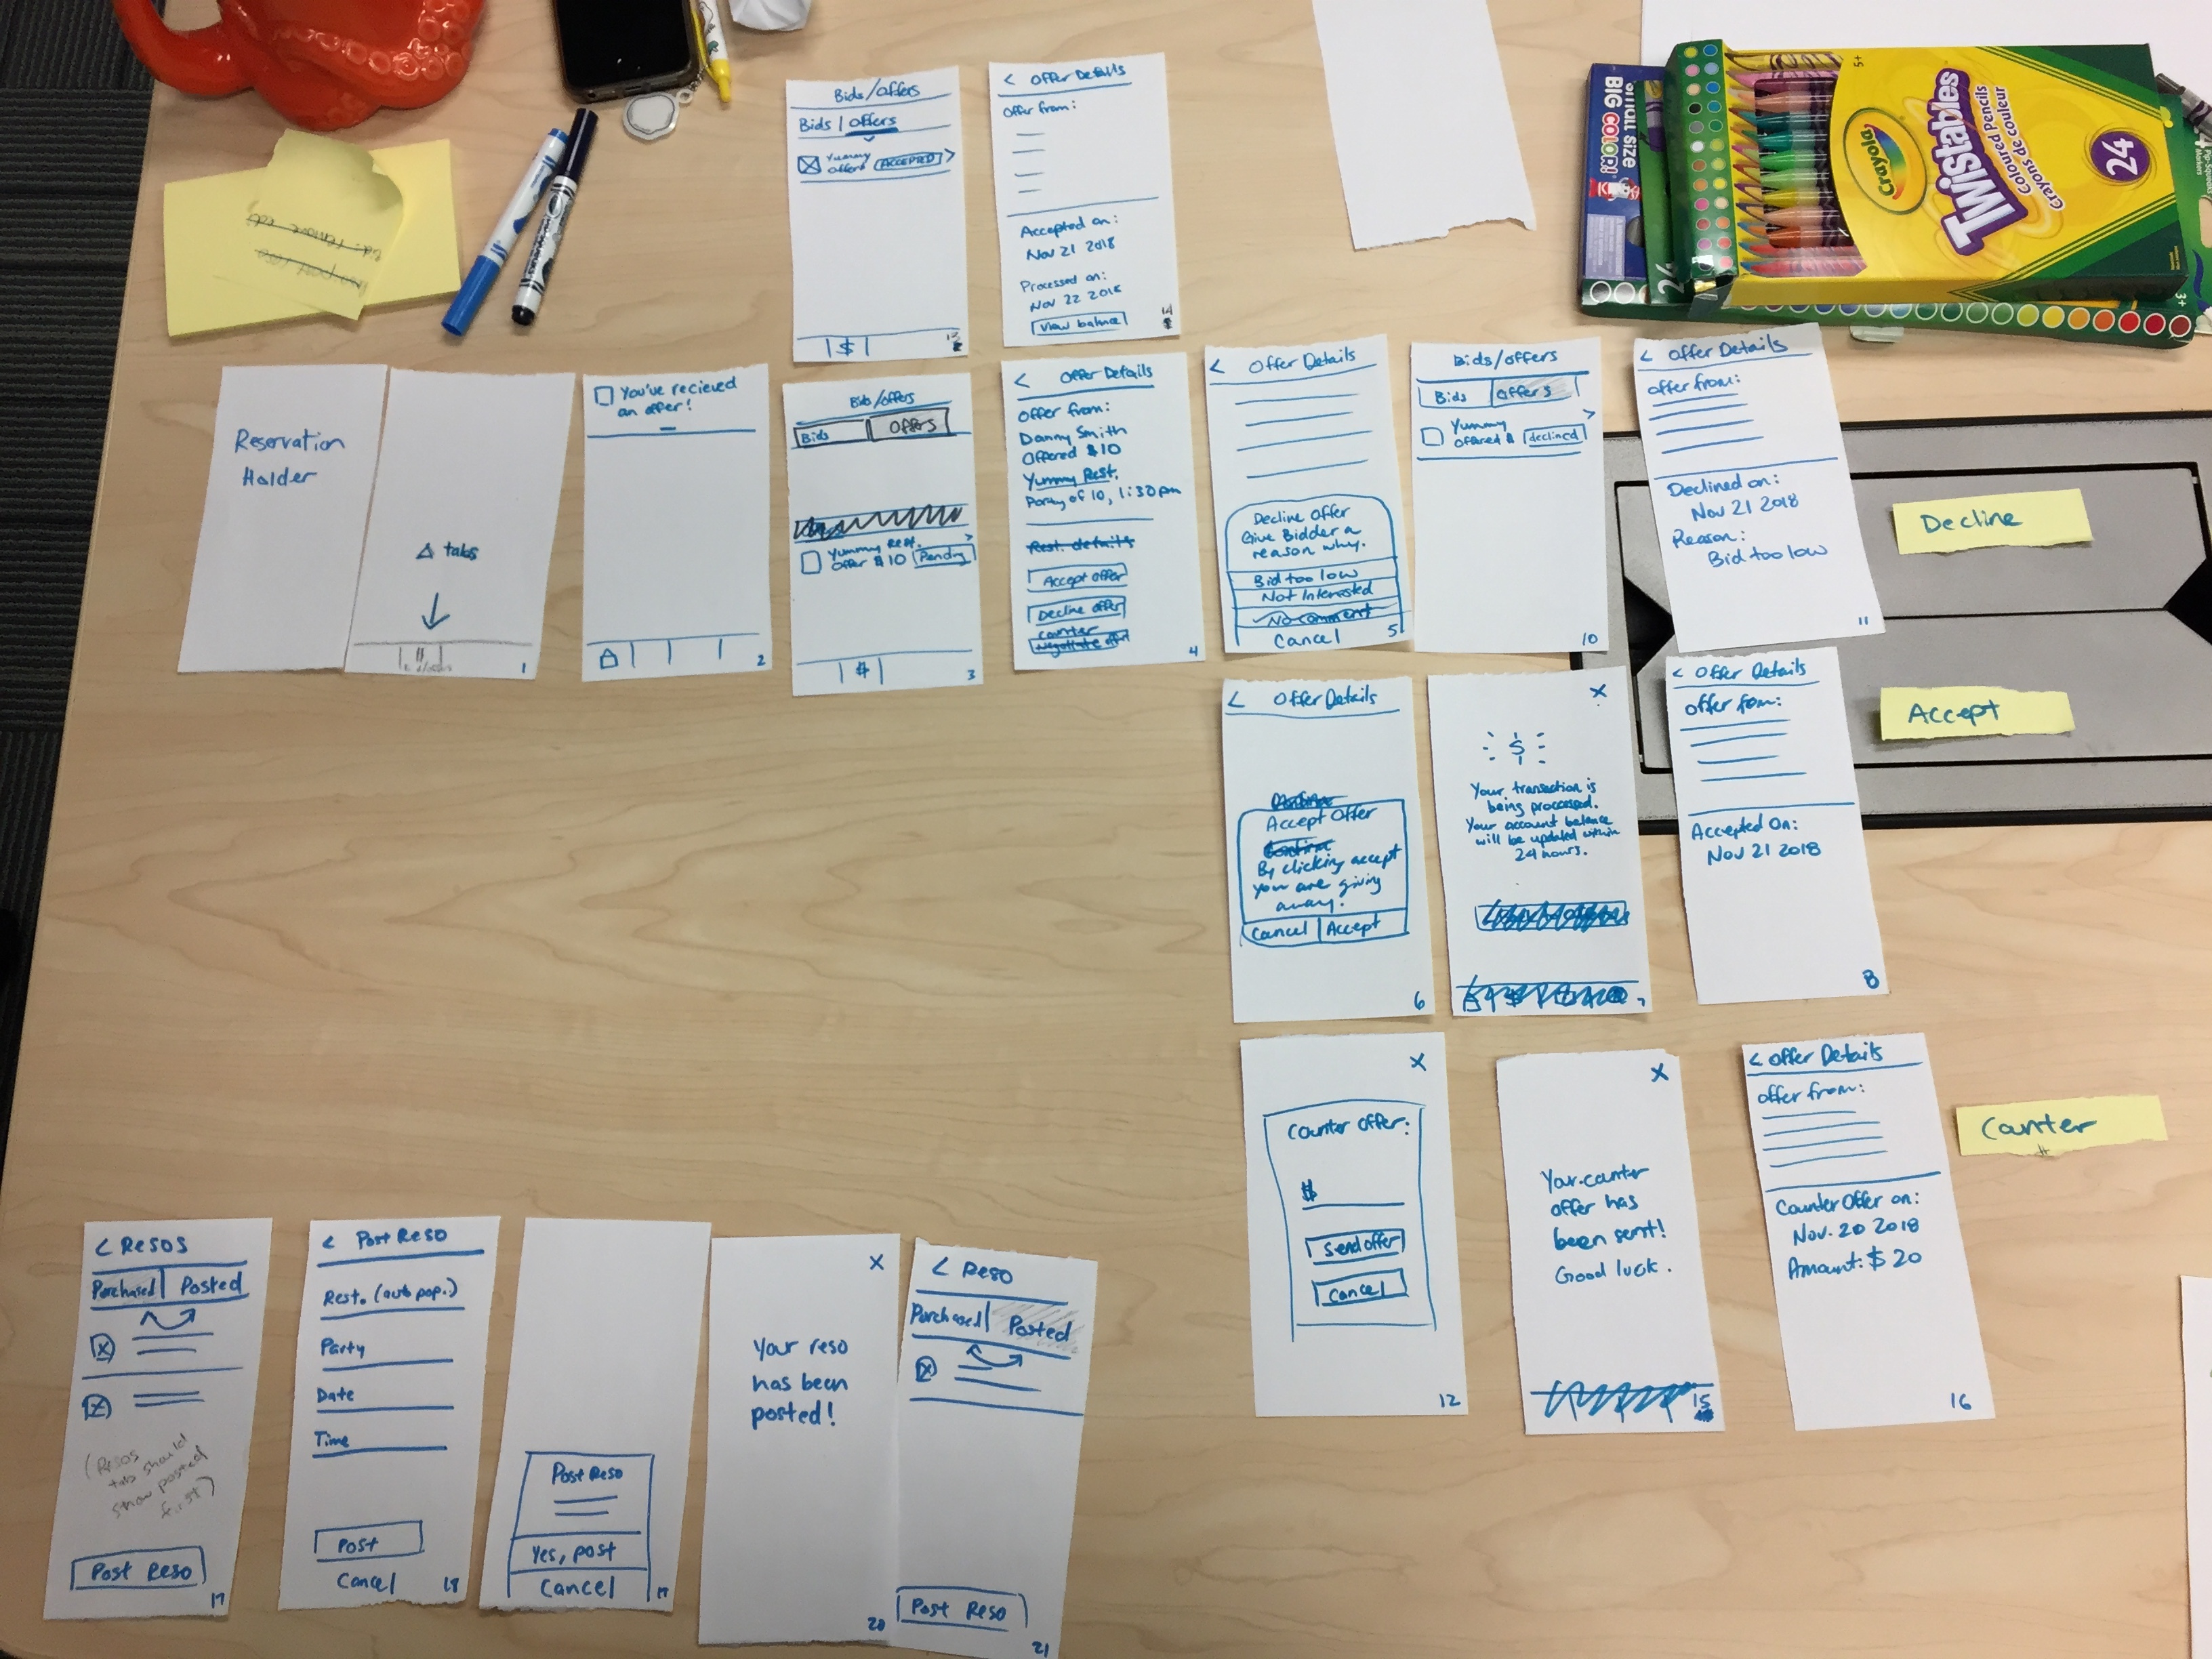 Bids/Offers
Bids | Offers
Yummy
offered ACCEPTED >
| $ |
< Offer Details
Offer from:
Accepted on:
Nov 21 2018
Processed on:
Nov 22 2018
View balance
14
SMALL SIZE
BIG COLOR!
24
5+
Crayola
Twistables
Coloured Pencils
Crayons de couleur
24
3+
Reservation
Holder
△ tabs
$
1
You've recieved
an offer!
2
Bids/offers
Bids
Offers
Yummy Rest. >
Offer $10 Pending
| $ |
3
< Offer Details
Offer from:
Danny Smith
Offered $10
Yummy Rest.
Party of 10, 1:30pm
Rest. details
Accept offer
Decline offer
counter
Negotiate offer
4
< Offer Details
Decline Offer
Give Bidder a
reason why.
Bid too low
Not Interested
No comment
Cancel
5
Bids/offers
Bids
Offers
>
Yummy
Offered $ declined
10
< Offer Details
offer from:
Declined on:
Nov 21 2018
Reason:
Bid too low
11
Decline
< Offer Details
Accept Offer
Confirm
By clicking accept
you are giving
away.
Cancel | Accept
6
X
$
Your transaction is
being proccessed.
Your account balance
will be updated within
24 hours.
7
< Offer Details
Offer from:
Accepted On:
Nov 21 2018
8
Accept
X
Counter Offer:
$
Send offer
Cancel
12
X
Your counter
offer has
been sent!
Good luck.
15
< Offer Details
offer from:
Counter Offer on:
Nov. 20 2018
Amount: $20
16
Counter
< Resos
Purchased | Posted
(Resos
tab should
show posted
first)
Post Reso
17
< Post Reso
Rest. (auto pop.)
Party
Date
Time
Post
Cancel
18
Post Reso
Yes, post
Cancel
19
X
Your reso
has been
posted!
20
< Reso
Purchased | Posted
Post Reso
21